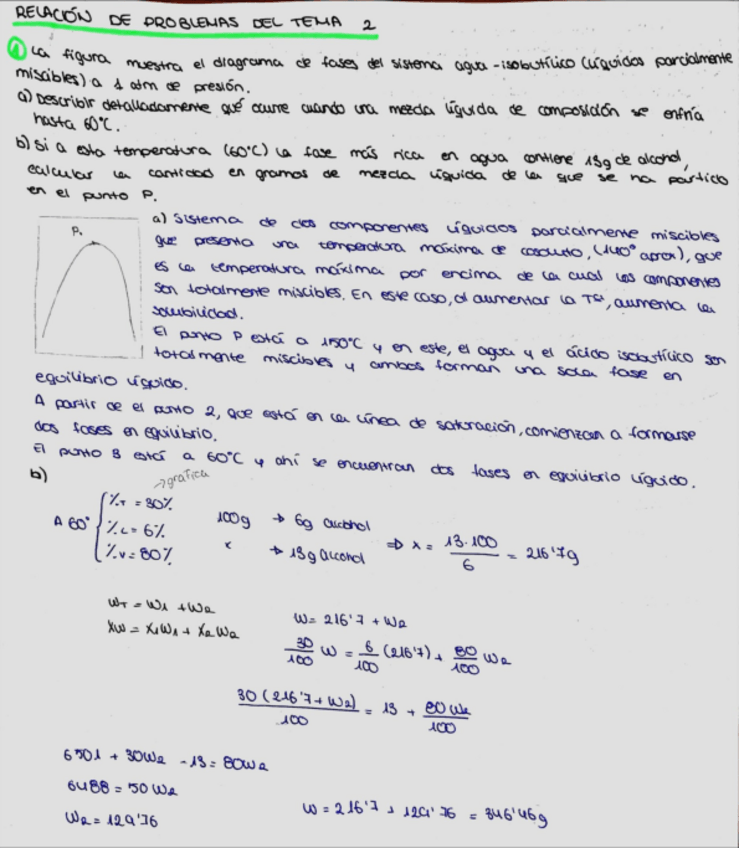 RELACIÓN DE PROBLEMAS DEL TEMA 2
1 La figura muestra el diagrama de fases del sistema agua-isobutílico (Líquidos parcialmente
miscibles) a 1 atm de presión.
a) Describir detalladamente qué ocurre cuando una mezcla líquida de composición se enfría
hasta 60°C.
b) Si a esta temperatura (60°C) la fase más rica en agua contiene 13g de alcohol,
calcular la cantidad en gramos de mezcla líquida de la que se ha partido
en el punto P.
P.
a) Sistema de dos componentes líquidos parcialmente miscibles
que presenta una temperatura máxima de cosoluto, (140° aprox), que
es la temperatura máxima por encima de la cual los componentes
son totalmente miscibles. En este caso, al aumentar la Tª, aumenta la
solubilidad.
El punto P está a 150°C y en este, el agua y el ácido isobutílico son
totalmente miscibles y ambos forman una sola fase en
equilibrio líquido.
A partir de el punto 2, que está en la línea de saturación, comienzan a formarse
dos fases en equilibrio.
El punto B está a 60°C y ahí se encuentran dos fases en equilibrio líquido.
b)
→gráfica
A 60° { %T = 30%
%L = 6%
%V = 80%
100g → 6g alcohol
x → 13g alcohol
⇒ x = 13·100 / 6 = 216'7g
WT = W1 + W2
XW = X1W1 + X2W2
W = 216'7 + W2
30/100 W = 6/100 (216'7) + 80/100 W2
30(216'7 + W2)/100 = 13 + 80W2/100
6501 + 30W2 - 13 = 80W2
6488 = 50W2
W2 = 129'76
W = 216'7 + 129'76 = 346'46g